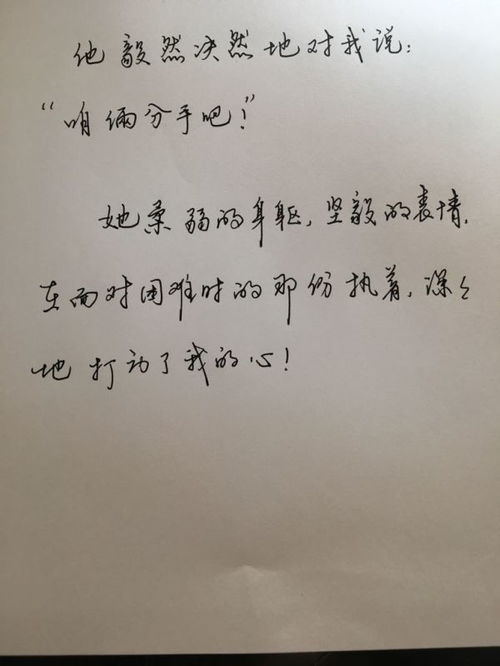 他毅然决然地对我说:
“咱俩分手吧!”
她柔弱的身躯,坚毅的表情,
在面对困难时的那份执着,深々
地打动了我的心!